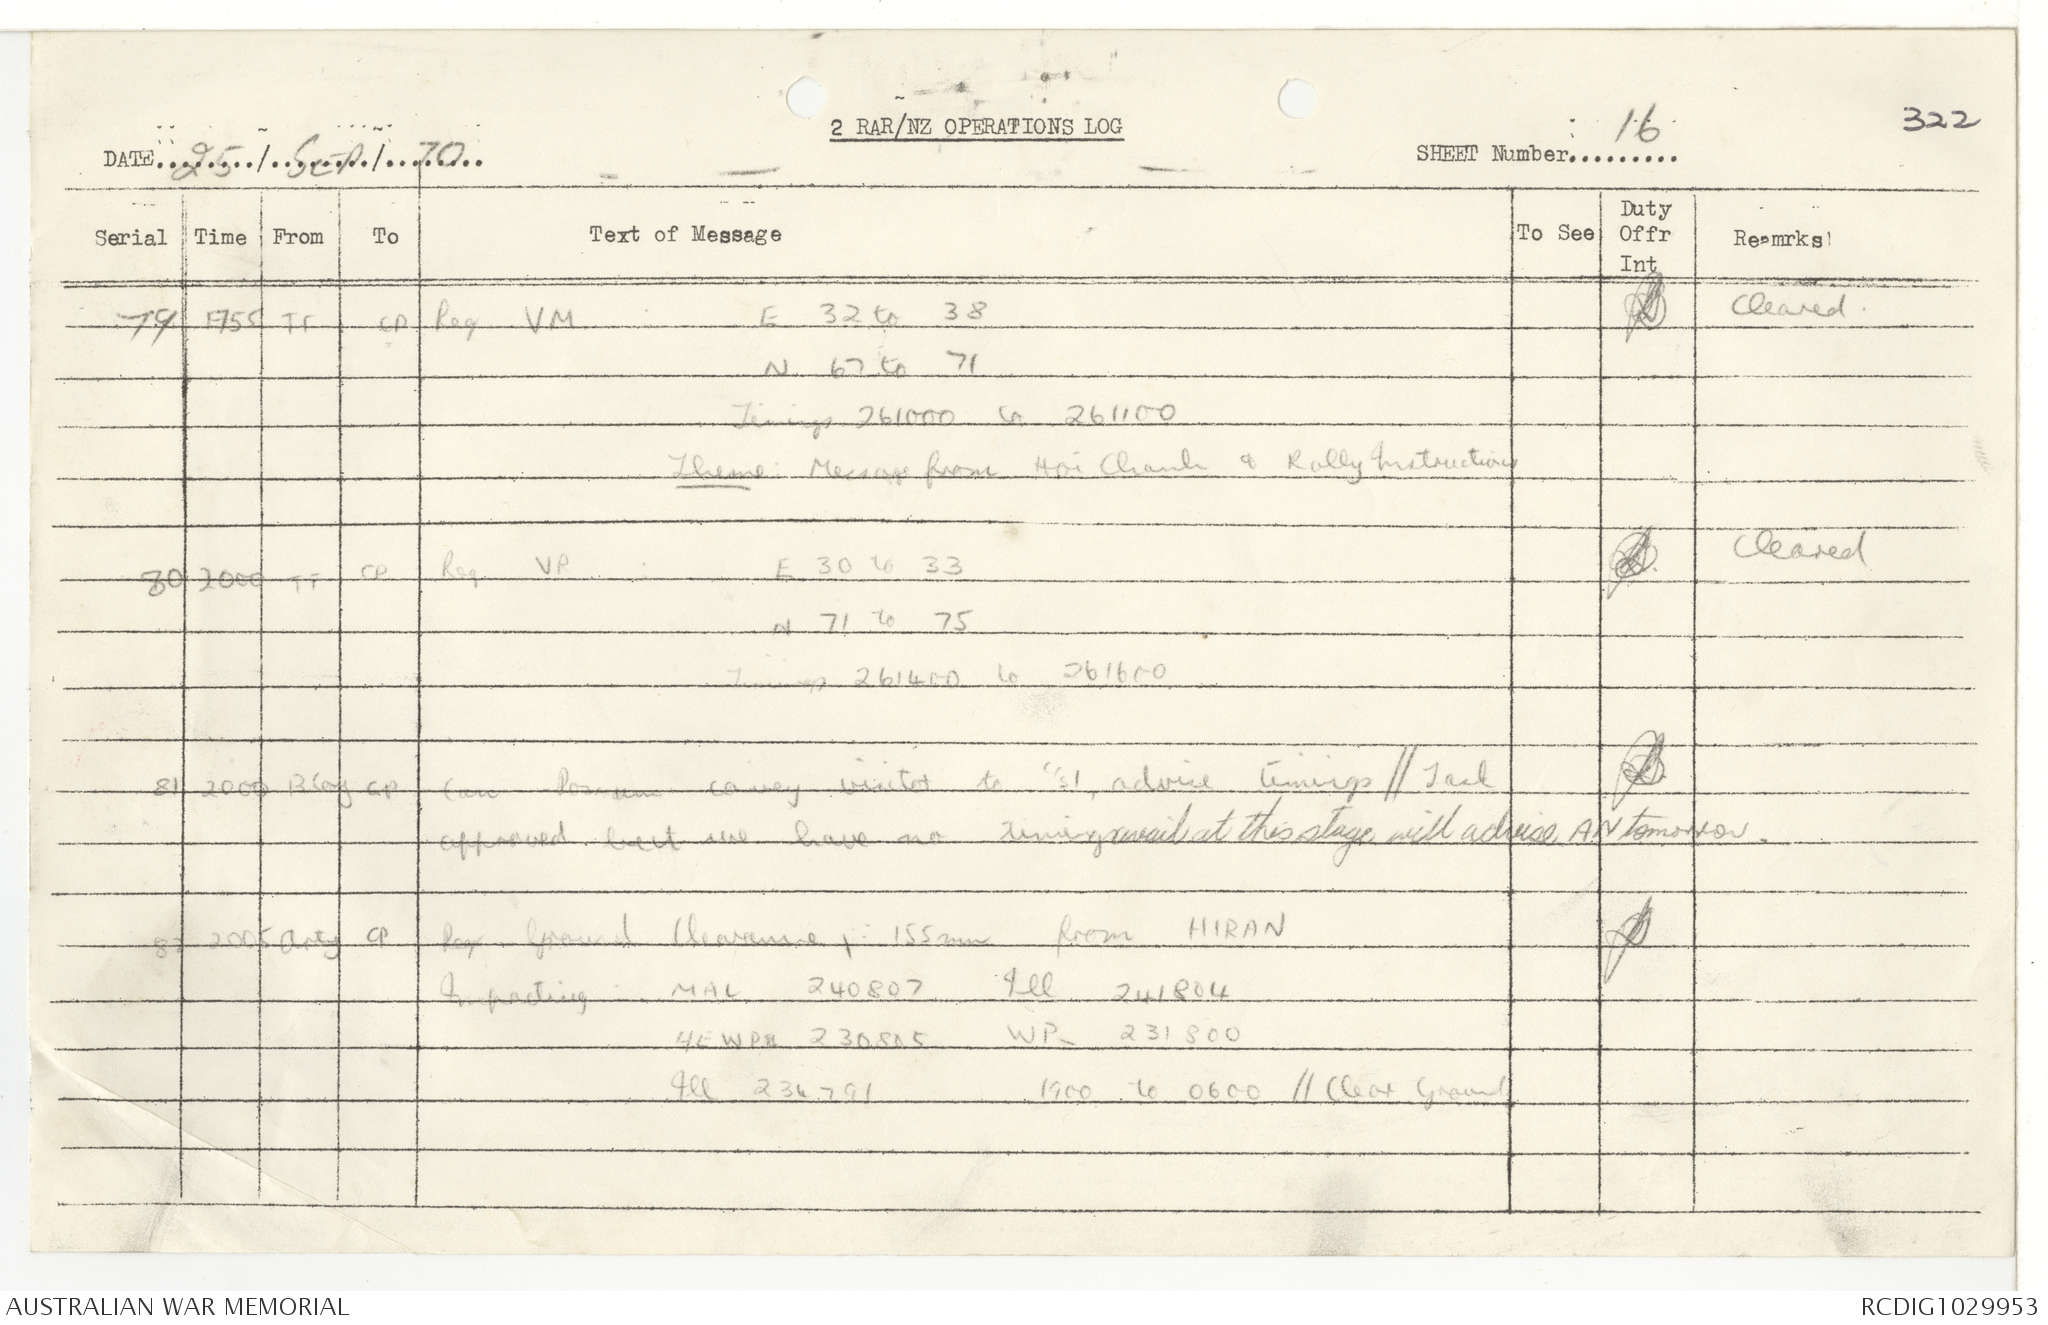 322
2 RAR/NZ OPERATIONS LOG
DATE 25 / Sep / 70
SHEET Number 16
Serial Time From To Text of Message To See Duty Offr Int Remrks
79 1955 TF CP Req VM E 32 to 38 Cleared.
N 67 to 71
Timings 261000 to 261100
Theme: Message from Hoi Chanh & Rally Instructions
80 2000 TF CP Req VP E 30 to 33 Cleared
N 71 to 75
Timings 261400 to 261600
81 2000 B Coy CP Can Possum convey visitor to advise timings // Task
approved but we have no timings avail at this stage will advise AN tomorrow.
2005 Arty CP Req Ground Clearance 155mm from HIRAN
Impacting MAL 240807 Ill 241804
230805 WP 231800
Ill 234791 1900 to 0600 // Clear Ground
AUSTRALIAN WAR MEMORIAL
RCDIG1029953